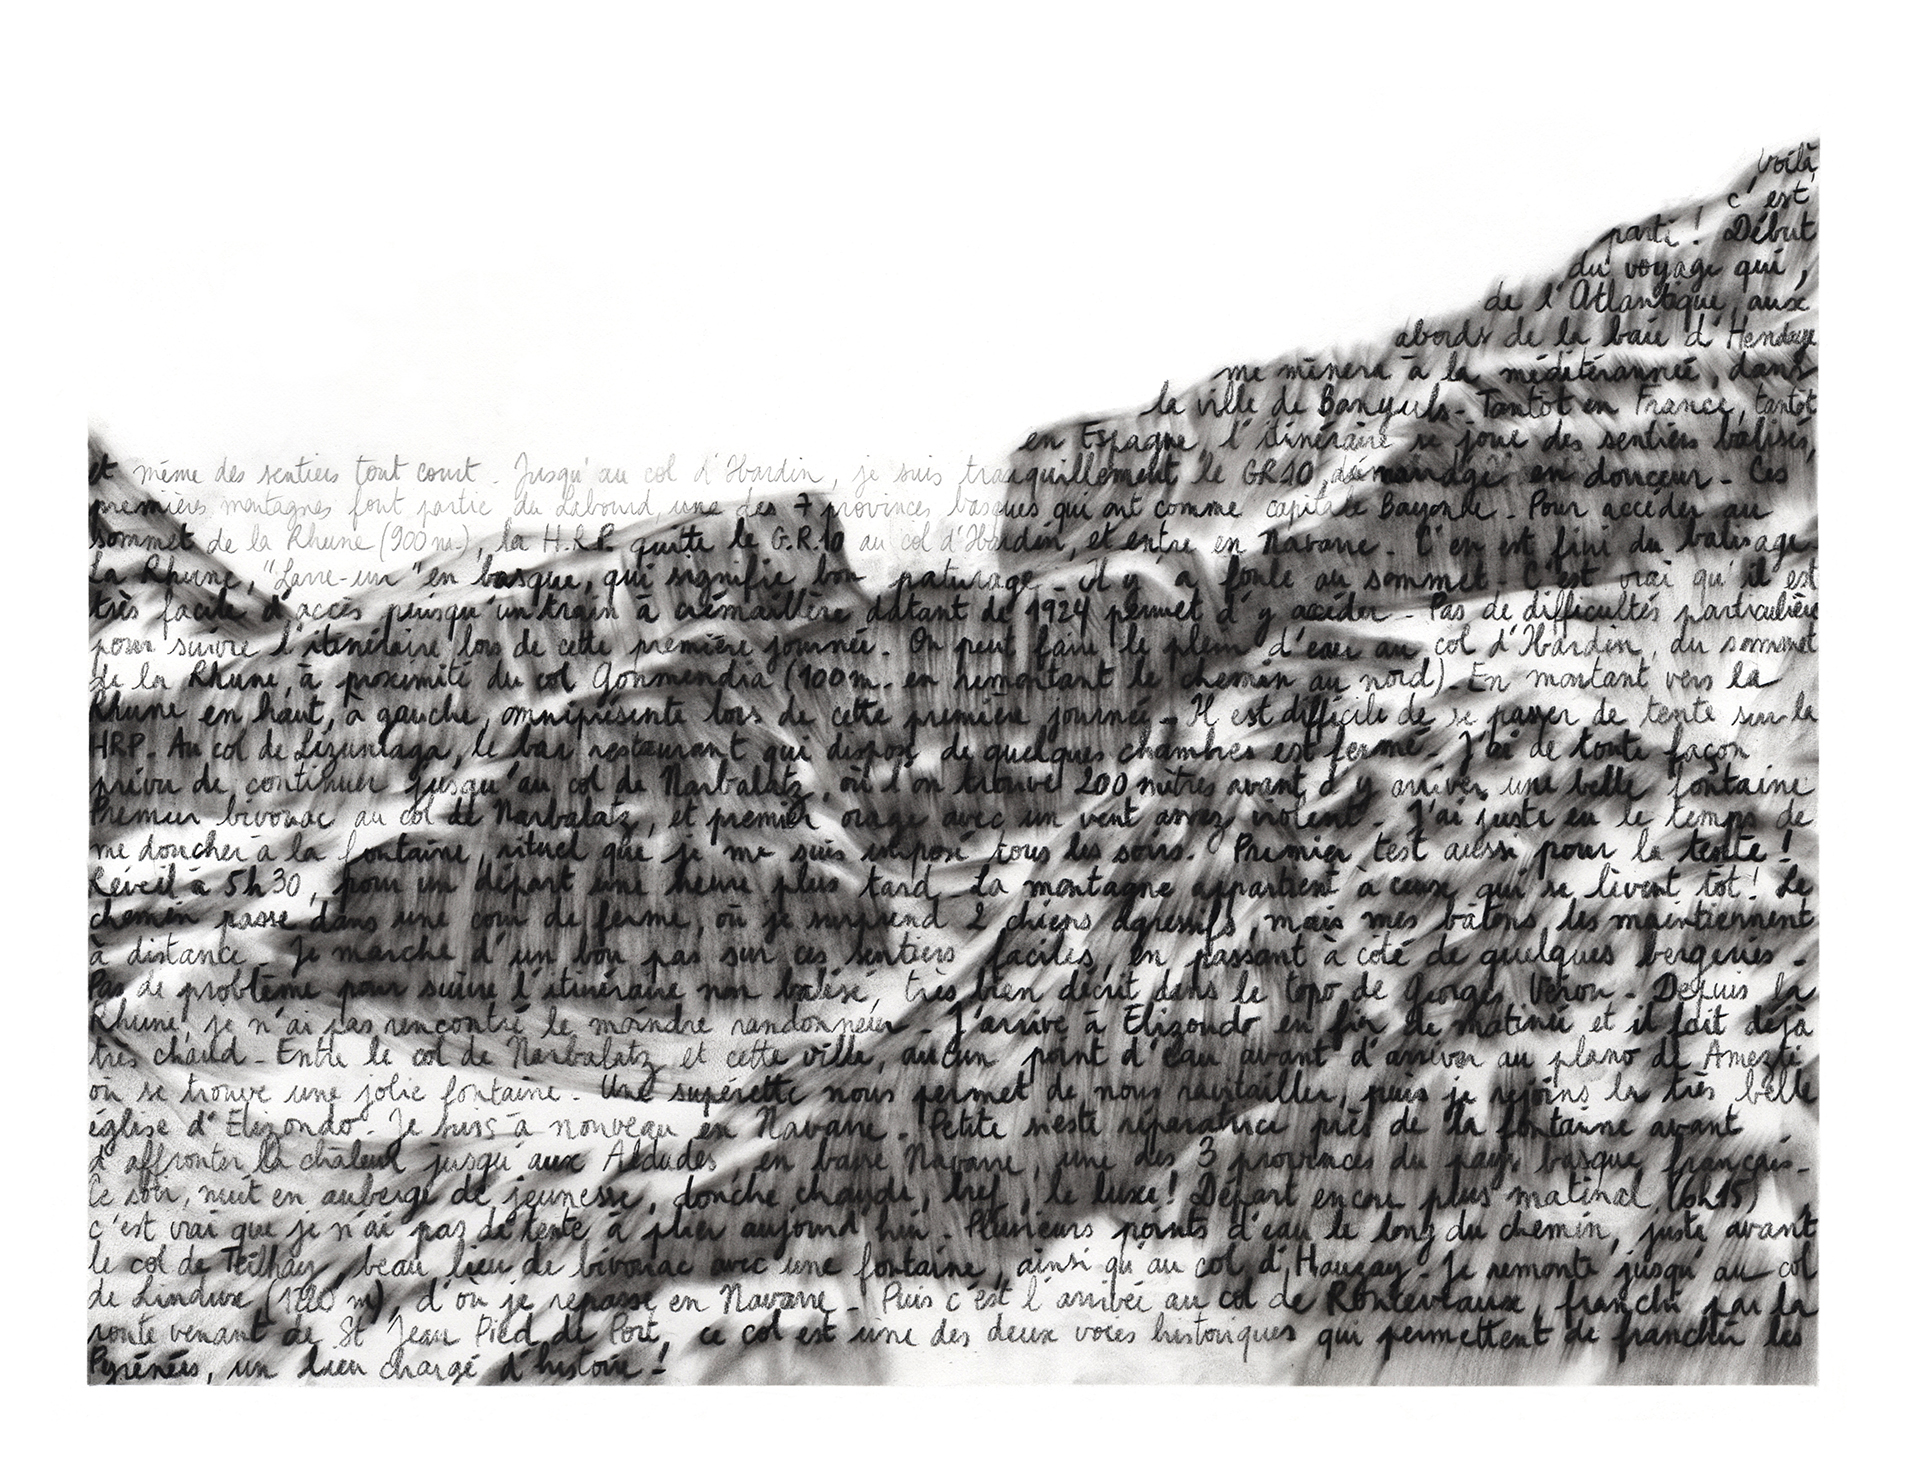 voilà,
c'est
parti! Début
du voyage qui,
de l'Atlantique, aux
abords de la baie d'Hendaye
me mènera à la méditérannée, dans
la ville de Banyuls. Tantôt en France, tantôt
en Espagne, l'itinéraire se joue des sentiers balisés,
et même des sentiers tout court. Jusqu'au col d'Ibardin, je suis tranquillement le GR10, démarrage en douceur. Ces
premières montagnes font partie du Labourd, une des 7 provinces basques qui ont comme capitale Bayonne. Pour accéder au
sommet de la Rhune (900m.), la H.R.P. quitte le G.R.10 au col d'Ibardin, et entre en Navarre. C'en est fini du balisage.
La Rhune, "Larre-un" en basque, qui signifie bon paturage. Il y a foule au sommet. C'est vrai qu'il est
très facile d'accès puisqu'un train à crémaillère datant de 1924 permet d'y accéder. Pas de difficultés particulière
pour suivre l'itinéraire lors de cette première journée. On peut faire le plein d'eau au col d'Ibardin, du sommet
de la Rhune, à proximité du col Gonmendia (100m. en remontant le chemin au nord). En montant vers la
Rhune en haut, à gauche, omniprésente lors de cette première journée. Il est difficile de se passer de tente sur la
HRP. Au col de Lizuniaga, le bar restaurant qui dispose de quelques chambres est fermé. J'ai de toute façon
prévu de continuer jusqu'au col de Narbalatz, où l'on trouve 200 mètres avant d'y arriver une belle fontaine
Premier bivouac au col de Narbalatz, et premier orage avec un vent assez violent. J'ai juste eu le temps de
me doucher à la fontaine, rituel que je me suis imposé tous les soirs. Premier test aussi pour la tente!
Réveil à 5h30, pour un départ une heure plus tard. La montagne appartient à ceux qui se lèvent tot! Le
chemin passe dans une cour de ferme, où je surprend 2 chiens agressifs, mais mes bâtons les maintiennent
à distance. Je marche d'un bon pas sur ces sentiers faciles, en passant à coté de quelques bergeries.
Pas de problème pour suivre l'itinéraire non balisé, très bien décrit dans le topo de Georges Véron. Depuis la
Rhune, je n'ai pas rencontré le moindre randonneur. J'arrive à Elizondo en fin de matinée et il fait déjà
très chaud. Entre le col de Narbalatz et cette ville, aucun point d'eau avant d'arriver au plano de Amezti
où se trouve une jolie fontaine. Une supérette nous permet de nous ravitailler, puis je rejoins la très belle
église d'Elizondo. Je suis à nouveau en Navarre. Petite sieste réparatrice près de la fontaine avant
d'affronter la chaleur jusqu'aux Aldudes en basse Navarre, une des 3 provinces du pays basque français.
Ce soir, nuit en auberge de jeunesse, douche chaude, bref, le luxe! Départ encore plus matinal (6h15)
c'est vrai que je n'ai pas de tente à plier aujourd'hui. Plusieurs points d'eau le long du chemin, juste avant
le col de Teilhay, beau lieu de bivouac avec une fontaine, ainsi qu'au col d'Hauzay. Je remonte jusqu'au col
de Lindux (1220 m), d'où je repasse en Navarre. Puis c'est l'arrivée au col de Ronceveaux, franchi par la
route venant de St Jean Pied de Port, ce col est une des deux voies historiques qui permettent de franchir les
Pyrénées, un lieu chargé d'histoire!